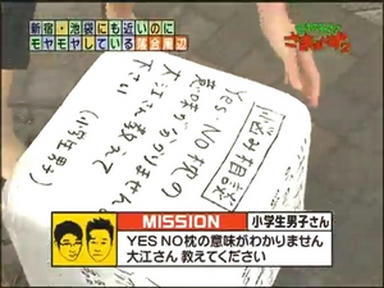 新宿・池袋にも近いのに
モヤモヤしている落合周辺
さまぁ〜ず2
悩み相談
Yes・NO枕の
意味がわかりません
大江さん教えて
下さい
(小学生男子)
MISSION
小学生男子さん
YES NO枕の意味がわかりません
大江さん 教えてください